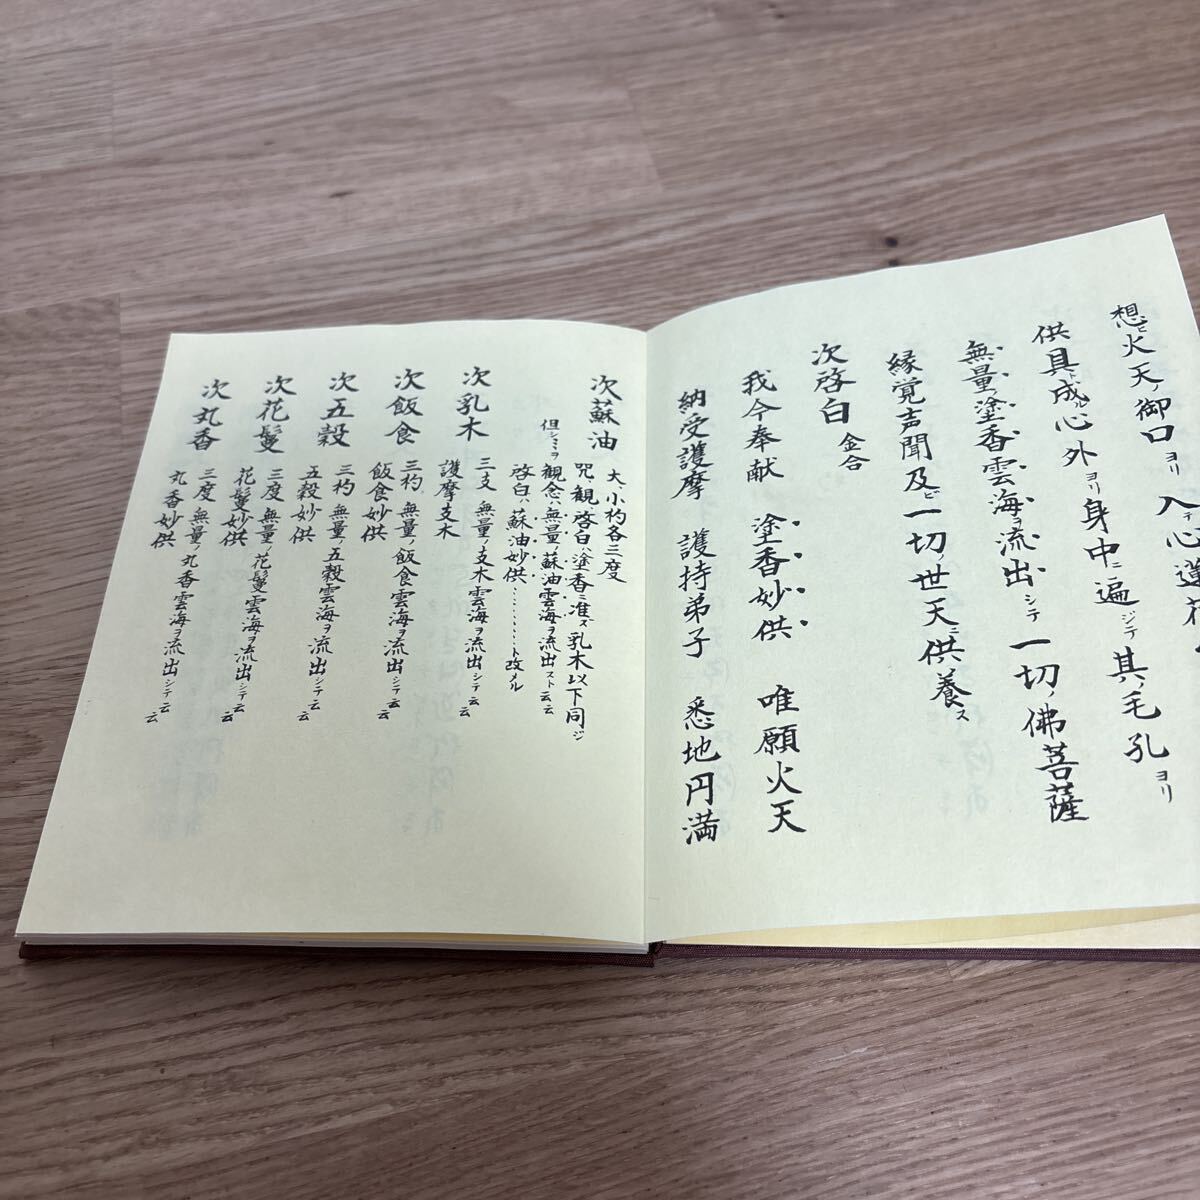 想ヒ火天ノ御口ヨリ入テ心道花
供具ト成ル心外ヨリ身中ニ遍ジテ其ノ毛孔ヨリ
無量塗香雲海ヲ流出シテ一切ノ佛菩薩
縁覚声聞及ビ一切ノ世天ニ供養ス
次啓白 金合
我今奉献 塗香妙供 唯願火天
納受護摩 護持弟子 悉地円満
次蘇油 大、小杓各三度
呪、観、啓白ハ塗香ニ准ズ乳木以下同ジ
但シ 観念ハ無量ノ蘇油雲海ヲ流出スト云云
啓白ハ蘇油妙供………ト改メル
次乳木 三支 無量ノ支木雲海ヲ流出シテ云云
護摩支木
次飯食 三杓 無量ノ飯食雲海ヲ流出シテ云云
飯食妙供
次五穀 三杓 無量ノ五穀雲海ヲ流出シテ云云
五穀妙供
次花鬘 三度 無量ノ花鬘雲海ヲ流出シテ云云
花鬘妙供
次丸香 三度 無量ノ丸香雲海ヲ流出シテ云云
丸香妙供